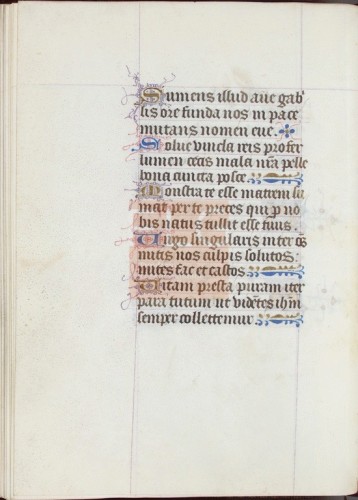 Sumens illud aue gab'
lis ore funda nos in pace
mutans nomen eue.
Solue vincla reis profer
lumen cecis mala nr̄a pelle
bona cuncta posce.
Monstra te esse matrem su
mat per te preces qui p̄ no
bis natus tulit esse tuus.
Uirgo singularis inter oēs
mitis nos culpis solutos:
mites fac et castos.
Uitam presta puram iter
para tutum ut vidētes ihm̄
semper collettemur